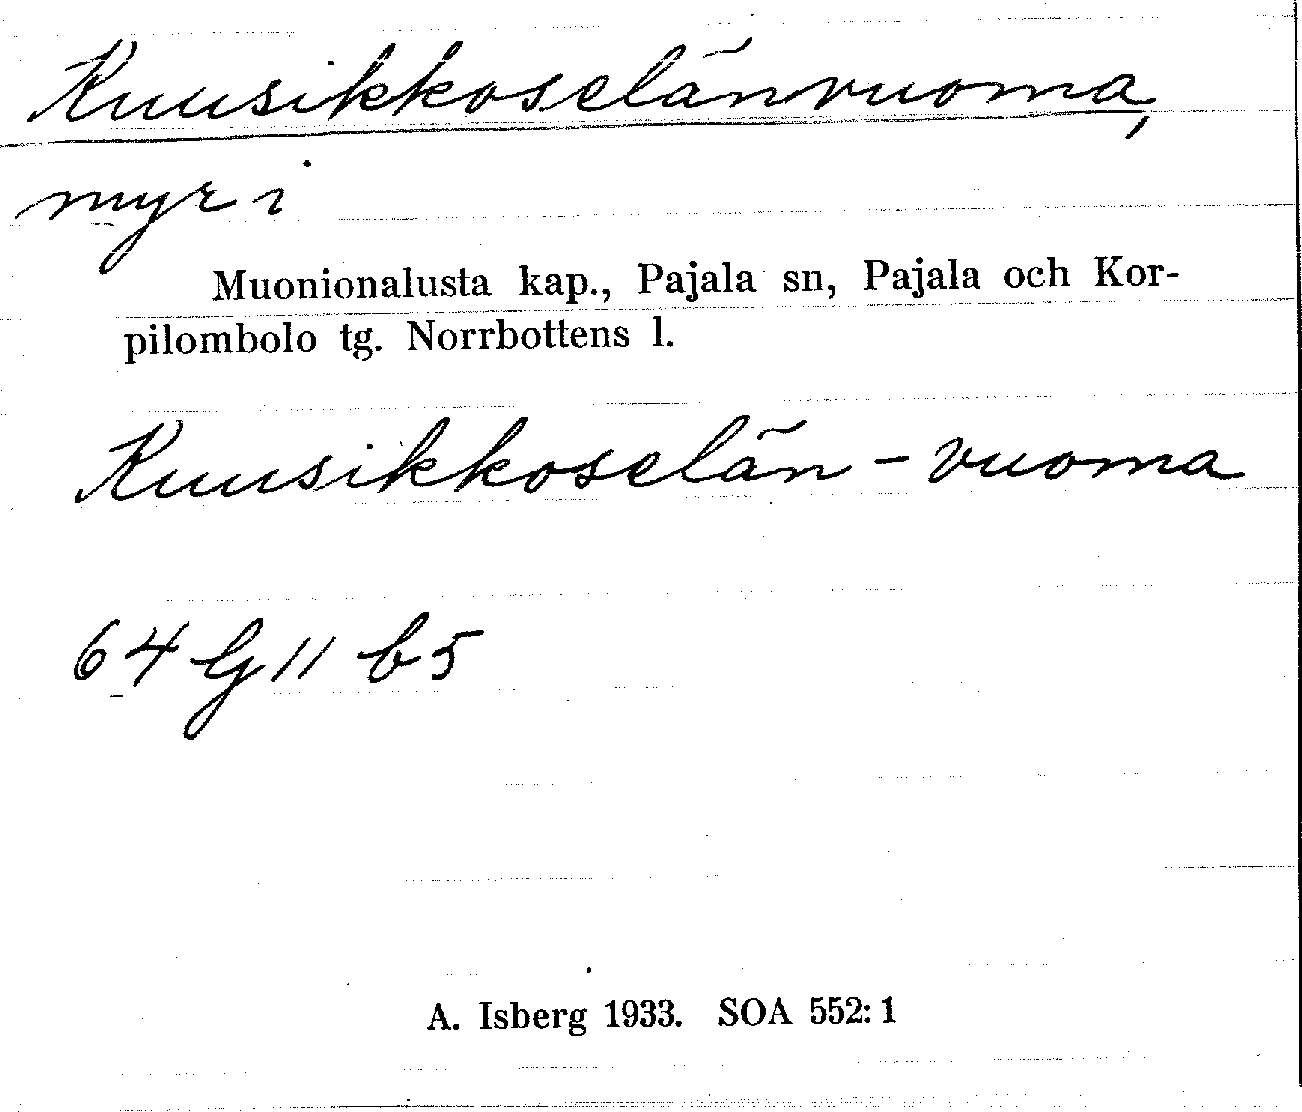 Kuusikkoselänvuoma,
myr i
Muonionalusta kap., Pajala sn, Pajala och Kor-
pilombolo tg. Norrbottens l.
Kuusikkoselän - vuoma
64 G 11 b 5
A. Isberg 1933. SOA 552: 1